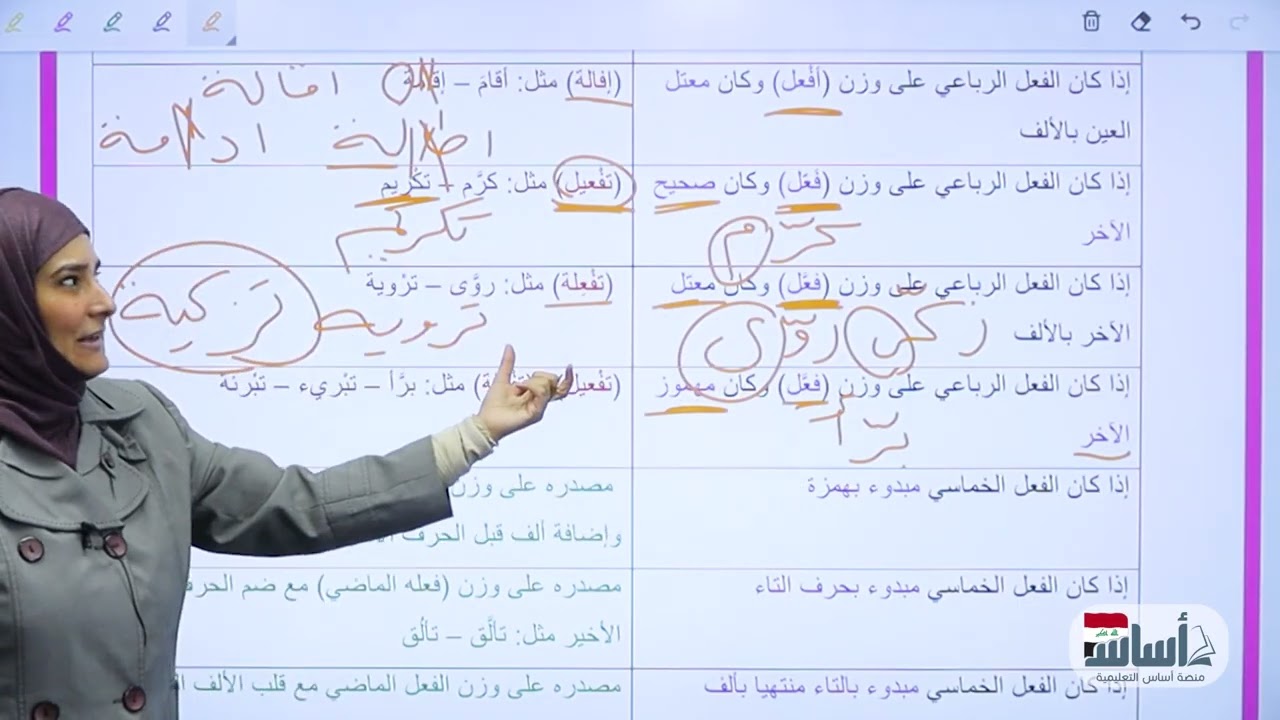 إذا كان الفعل الرباعي على وزن (أفْعل) وكان معتل
العين بالألف
(إفالة) مثل: أقامَ – إقامة
اقالة
اطالة
ادامة
إذا كان الفعل الرباعي على وزن (فَعّل) وكان صحيح
الآخر
(تفْعيل) مثل: كرَّم – تكْريم
كرّم
تكريم
إذا كان الفعل الرباعي على وزن (فعَّل) وكان معتل
الآخر بالألف
(تفْعِلة) مثل: روَّى – ترْوية
زكّى
روّى
تروية
تزكية
إذا كان الفعل الرباعي على وزن (فعَّل) وكان مهموز
الآخر
(تفْعيل) مثل: برَّأ – تبْريء – تبْرئة
برّأ
إذا كان الفعل الخماسي مبدوء بهمزة
مصدره على وزن
وإضافة ألف قبل الحرف
إذا كان الفعل الخماسي مبدوء بحرف التاء
مصدره على وزن (فعله الماضي) مع ضم الحرف
الأخير مثل: تألَّق – تألُق
إذا كان الفعل الخماسي مبدوء بالتاء منتهيا بألف
مصدره على وزن الفعل الماضي مع قلب الألف
أساس
منصة أساس التعليمية